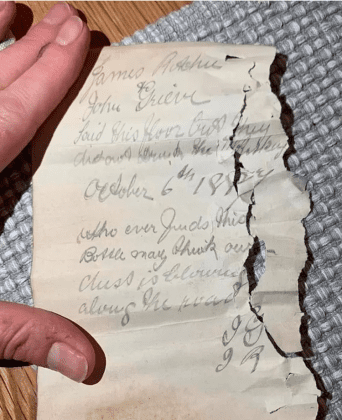 James Ritchie
John Grieve
laid this floor but they
did not drink the whisky
October 6th 1887
Who ever finds this
Bottle may think our
dust is blowing
along the road
J G
J R